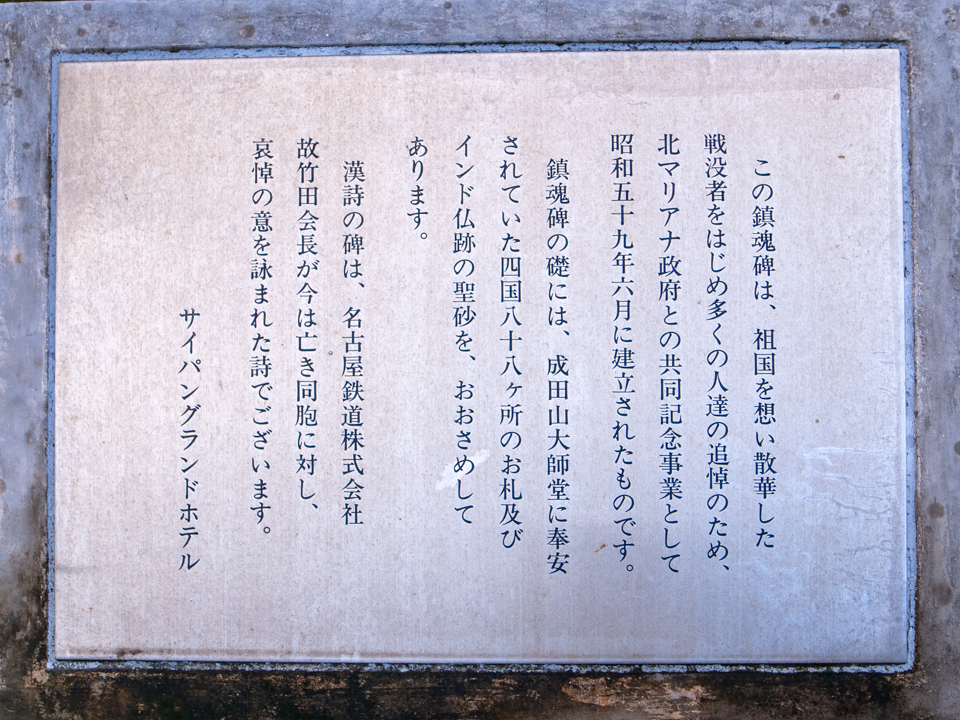 この鎮魂碑は、祖国を想い散華した
戦没者をはじめ多くの人達の追悼のため、
北マリアナ政府との共同記念事業として
昭和五十九年六月に建立されたものです。
鎮魂碑の礎には、成田山大師堂に奉安
されていた四国八十八ヶ所のお札及び
インド仏跡の聖砂を、おおさめして
あります。
漢詩の碑は、名古屋鉄道株式会社
故竹田会長が今は亡き同胞に対し、
哀悼の意を詠まれた詩でございます。
サイパングランドホテル